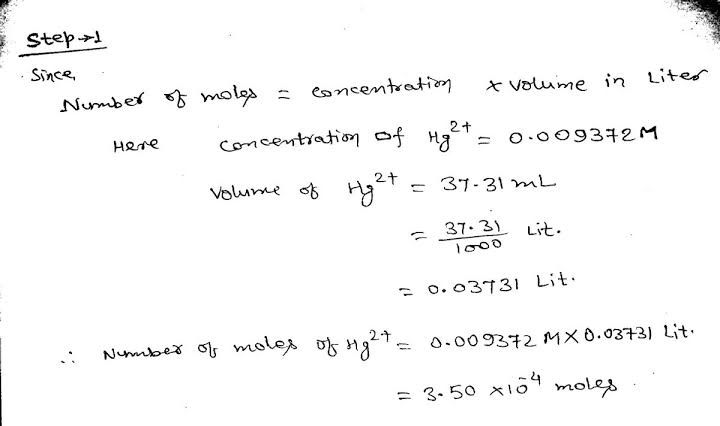 Step→1
Since,
Number of moles = concentration x volume in Liter
Here concentration of Hg²⁺ = 0.009372M
Volume of Hg²⁺ = 37.31 mL
= 37.31/1000 Lit.
= 0.03731 Lit.
∴ Number of moles of Hg²⁺ = 0.009372 M X 0.03731 Lit.
= 3.50 x10⁻⁴ moles.